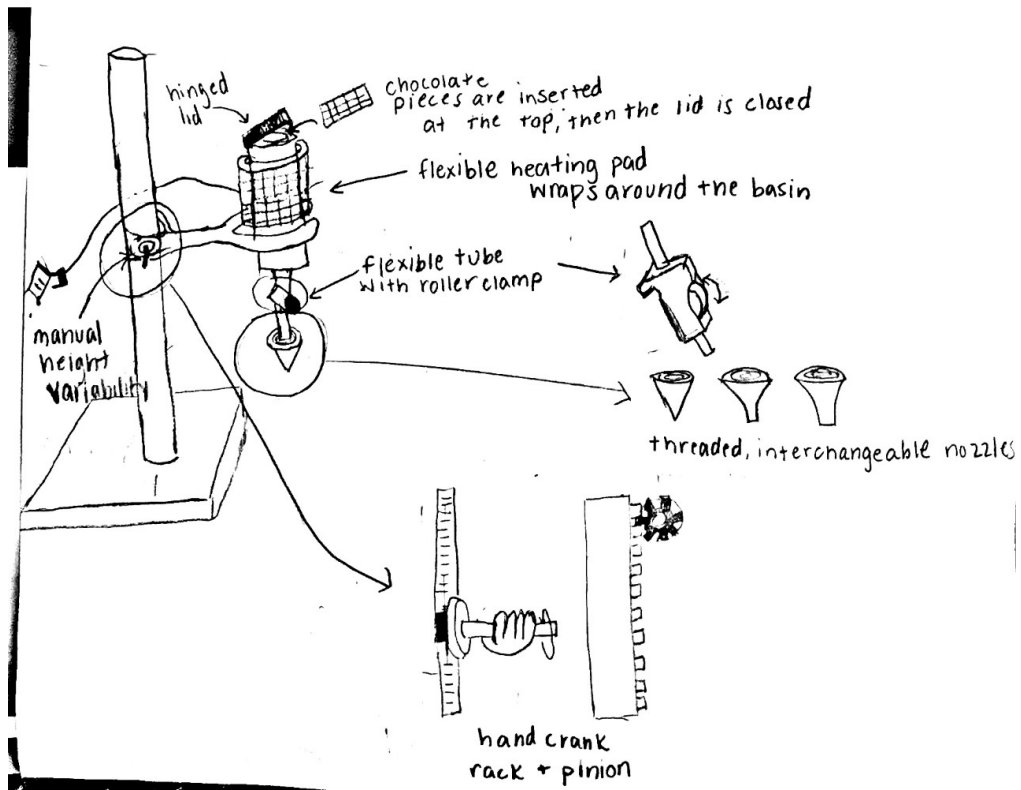 hinged
lid
chocolate
pieces are inserted
at the top, then the lid is closed
flexible heating pad
wraps around the basin
flexible tube
with roller clamp
manual
height
variability
threaded, interchangeable nozzles
hand crank
rack + pinion